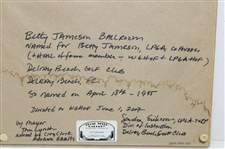 Betty Jameson Ballroom
Named for Betty Jameson, LPGA Co-Founder
(+ Hall of Fame member - WGHOF + LPGA HOF)
Delray Beach Golf Club
Delray Beach, FL
So named on April 18th - 1995
Donated to WGHOF June 1, 2007
by Mayor
Tom Lynch
Sandra Eriksson, LPGA - T+CP
Dir of Instruction
Delray Beach Golf Club